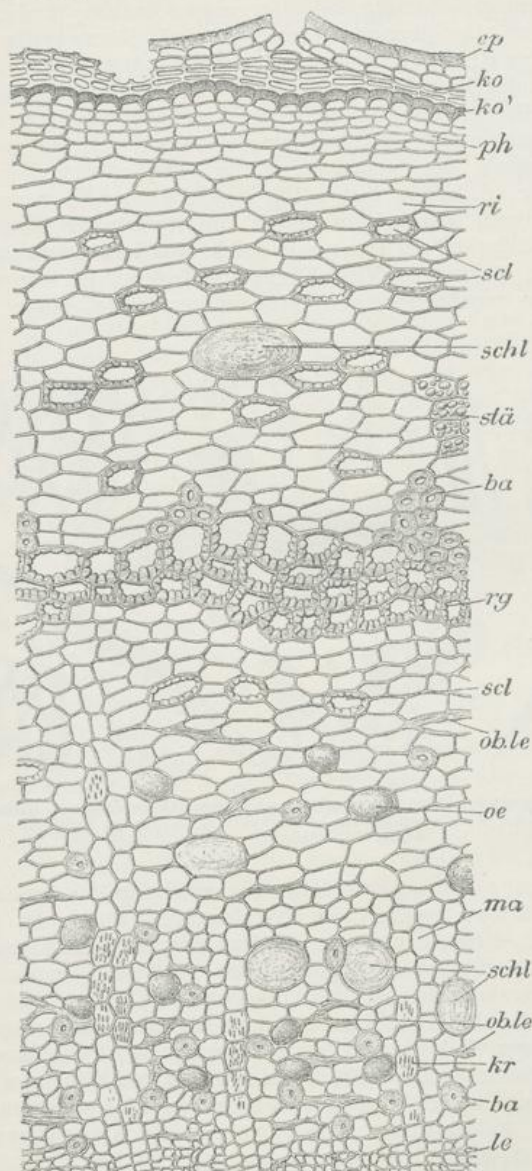 ep
ko
ko'
ph
ri
scl
schl
stä
ba
rg
scl
ob.le
oe
ma
schl
ob.le
kr
ba
le